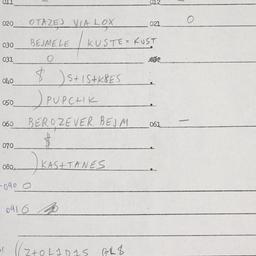 011 012
020 OTAZEJ VIA LOX 021 O
030 BEJMELE / KUSTE = KUST
031 O
040 $ ) S+IS+KBES
050 ) PUPCHIK
060 BEROZEVER BEJM 061 —
070 $
080 ) KAS+TANES
090 O
091 6